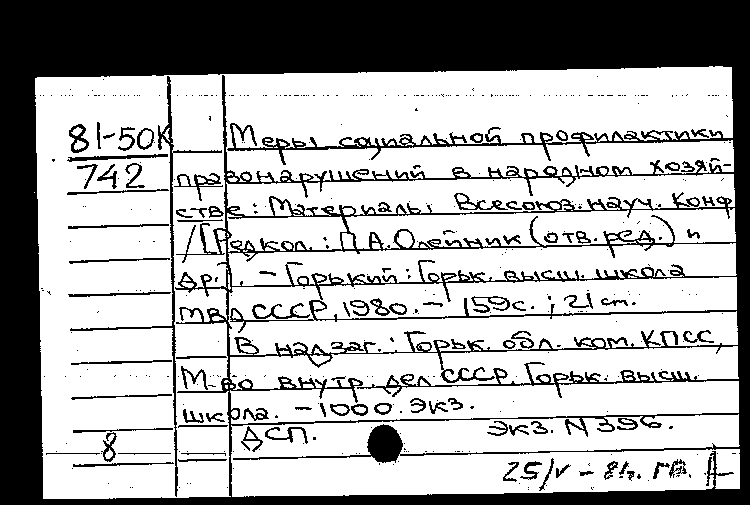 81-50К Меры социальной профилактики
742 правонарушений в народном хозяй-
стве: Материалы Всесоюз. науч. конф
/[Редкол.: П.А.Олейник (отв. ред.) и
др.]. - Горький: Горьк. высш. школа
МВД СССР, 1980. - 159с.; 21 cm.
В надзаг.: Горьк. обл. ком. КПСС,
М-во внутр. дел СССР. Горьк. высш.
школа. - 1000 экз.
8 ДСП. экз. N 396.
25/V - 81г.